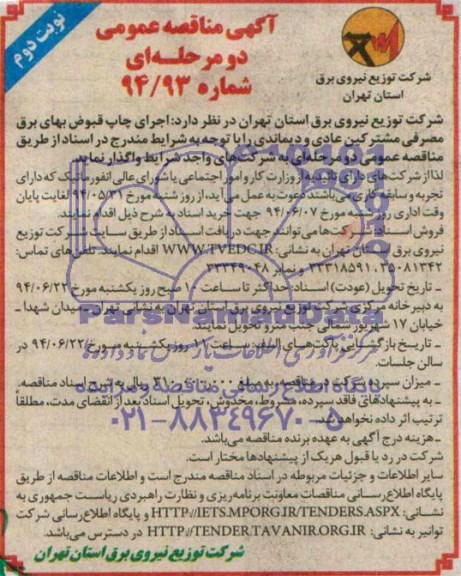 نوبت دوم
آگهی مناقصه عمومی
دو مرحله‌ای
شماره ۹۴/۹۳
شرکت توزیع نیروی برق
استان تهران
شرکت توزیع نیروی برق استان تهران در نظر دارد: اجرای چاپ قبوض بهای برق
مصرفی مشترکین عادی و دیماندی را با توجه به شرایط مندرج در اسناد از طریق
مناقصه عمومی دو مرحله‌ای به شرکت‌های واجد شرایط واگذار نماید.
لذا از شرکت‌های دارای تائیدیه از وزارت کار و امور اجتماعی یا شورای عالی انفورماتیک که دارای
تجربه و سابقه کاری می‌باشند دعوت به عمل می‌آید، از روز شنبه مورخ ۹۴/۰۵/۳۱ لغایت پایان
وقت اداری روز شنبه مورخ ۹۴/۰۶/۰۷ جهت خرید اسناد به شرح ذیل اقدام نمایند.
فروش اسناد: شرکت‌ها می‌توانند جهت دریافت اسناد از طریق سایت شرکت توزیع
نیروی برق استان تهران به نشانی: WWW.TVEDC.IR اقدام نمایند. تلفن‌های تماس:
۳۵۰۸۱۳۴۲ ـ ۳۳۳۱۸۵۹۱ و نمابر ۳۳۳۴۹۰۴۸
ـ تاریخ تحویل (عودت) اسناد: حداکثر تا ساعت ۱۰ صبح روز یکشنبه مورخ ۹۴/۰۶/۲۲
به دبیرخانه مرکزی شرکت توزیع نیروی برق استان تهران به نشانی تهران ـ میدان شهدا ـ
خیابان ۱۷ شهریور شمالی جنب مترو تحویل نمایند.
ـ تاریخ بازگشایی پاکت‌های الف: ساعت ۱۱ روز یکشنبه مورخ ۹۴/۰۶/۲۲ در
سالن جلسات.
ـ میزان سپرده شرکت در مناقصه: به مبلغ ریال به شرح اسناد مناقصه.
ـ به پیشنهادهای فاقد سپرده، مشروط، مخدوش، تحویل اسناد بعد از انقضای مدت، مطلقا
ترتیب اثر داده نخواهد شد.
ـ هزینه درج آگهی به عهده برنده مناقصه می‌باشد.
شرکت در رد یا قبول هریک از پیشنهادها مختار است.
سایر اطلاعات و جزئیات مربوطه در اسناد مناقصه مندرج است و اطلاعات مناقصه از طریق
پایگاه اطلاع‌رسانی مناقصات معاونت برنامه‌ریزی و نظارت راهبردی ریاست جمهوری به
نشانی: HTTP//IETS.MPORG.IR/TENDERS.ASPX و پایگاه اطلاع‌رسانی شرکت
توانیر به نشانی: HTTP//TENDER.TAVANIR.ORG.IR در دسترس می‌باشد.
شرکت توزیع نیروی برق استان تهران
ParsNamadData
۰۲۱-۸۸۳۴۹۶۷۰-۵